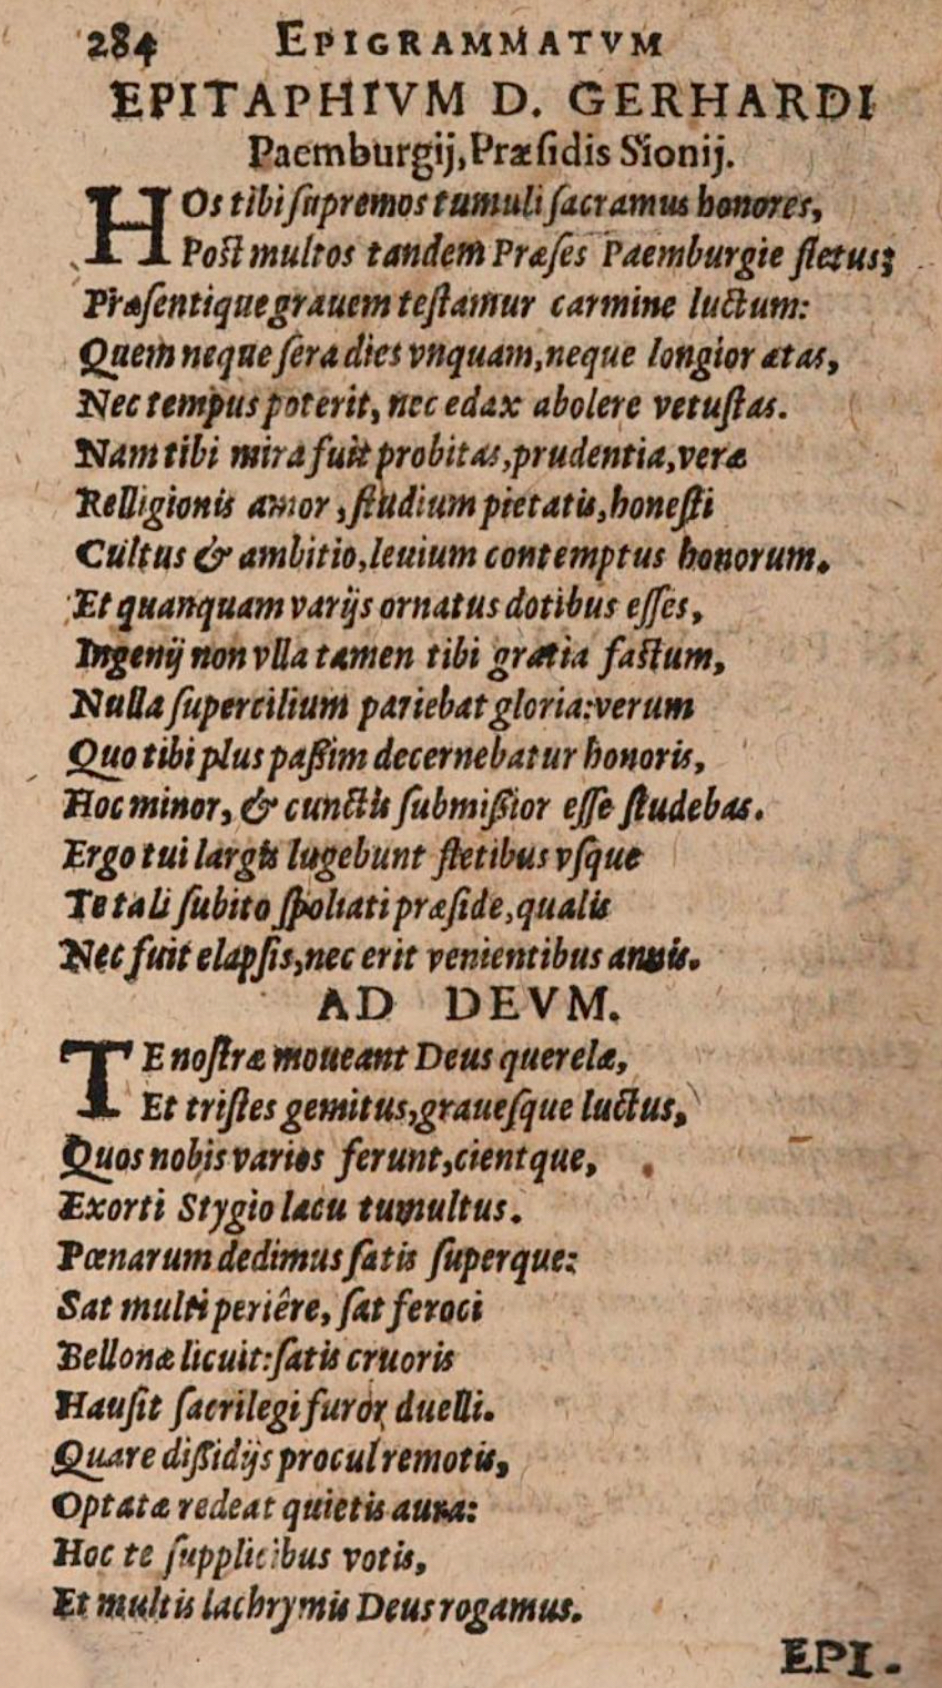 284 EPIGRAMMATVM
EPITAPHIVM D. GERHARDI
Paemburgij, Præſidis Sionij.
HOs tibi ſupremos tumuli ſacramus honores,
Poſt multos tandem Præſes Paemburgie fletus;
Præſentique grauem teſtamur carmine luctum:
Quem neque ſera dies vnquam, neque longior ætas,
Nec tempus poterit, nec edax abolere vetuſtas.
Nam tibi mira fuit probitas, prudentia, veræ
Relligionis amor, ſtudium pietatis, honeſti
Cultus & ambitio, leuium contemptus honorum.
Et quanquam varijs ornatus dotibus eſſes,
Ingenij non vlla tamen tibi gratia faſtum,
Nulla ſupercilium pariebat gloria: verum
Quo tibi plus paßim decernebatur honoris,
Hoc minor, & cunctis ſubmißior eſſe ſtudebas.
Ergo tui largis lugebunt fletibus vſque
Te tali ſubito ſpoliati præſide, qualis
Nec fuit elapſis, nec erit venientibus annis.
AD DEVM.
TE noſtræ moueant Deus querelæ,
Et triſtes gemitus, graueſque luctus,
Quos nobis varios ferunt, cientque,
Exorti Stygio lacu tumultus.
Pœnarum dedimus ſatis ſuperque:
Sat multi periêre, ſat feroci
Bellonæ licuit: ſatis cruoris
Hauſit ſacrilegi furor duelli.
Quare dißidijs procul remotis,
Optatæ redeat quietis aura:
Hoc te ſupplicibus votis,
Et multis lachrymis Deus rogamus.
EPI.